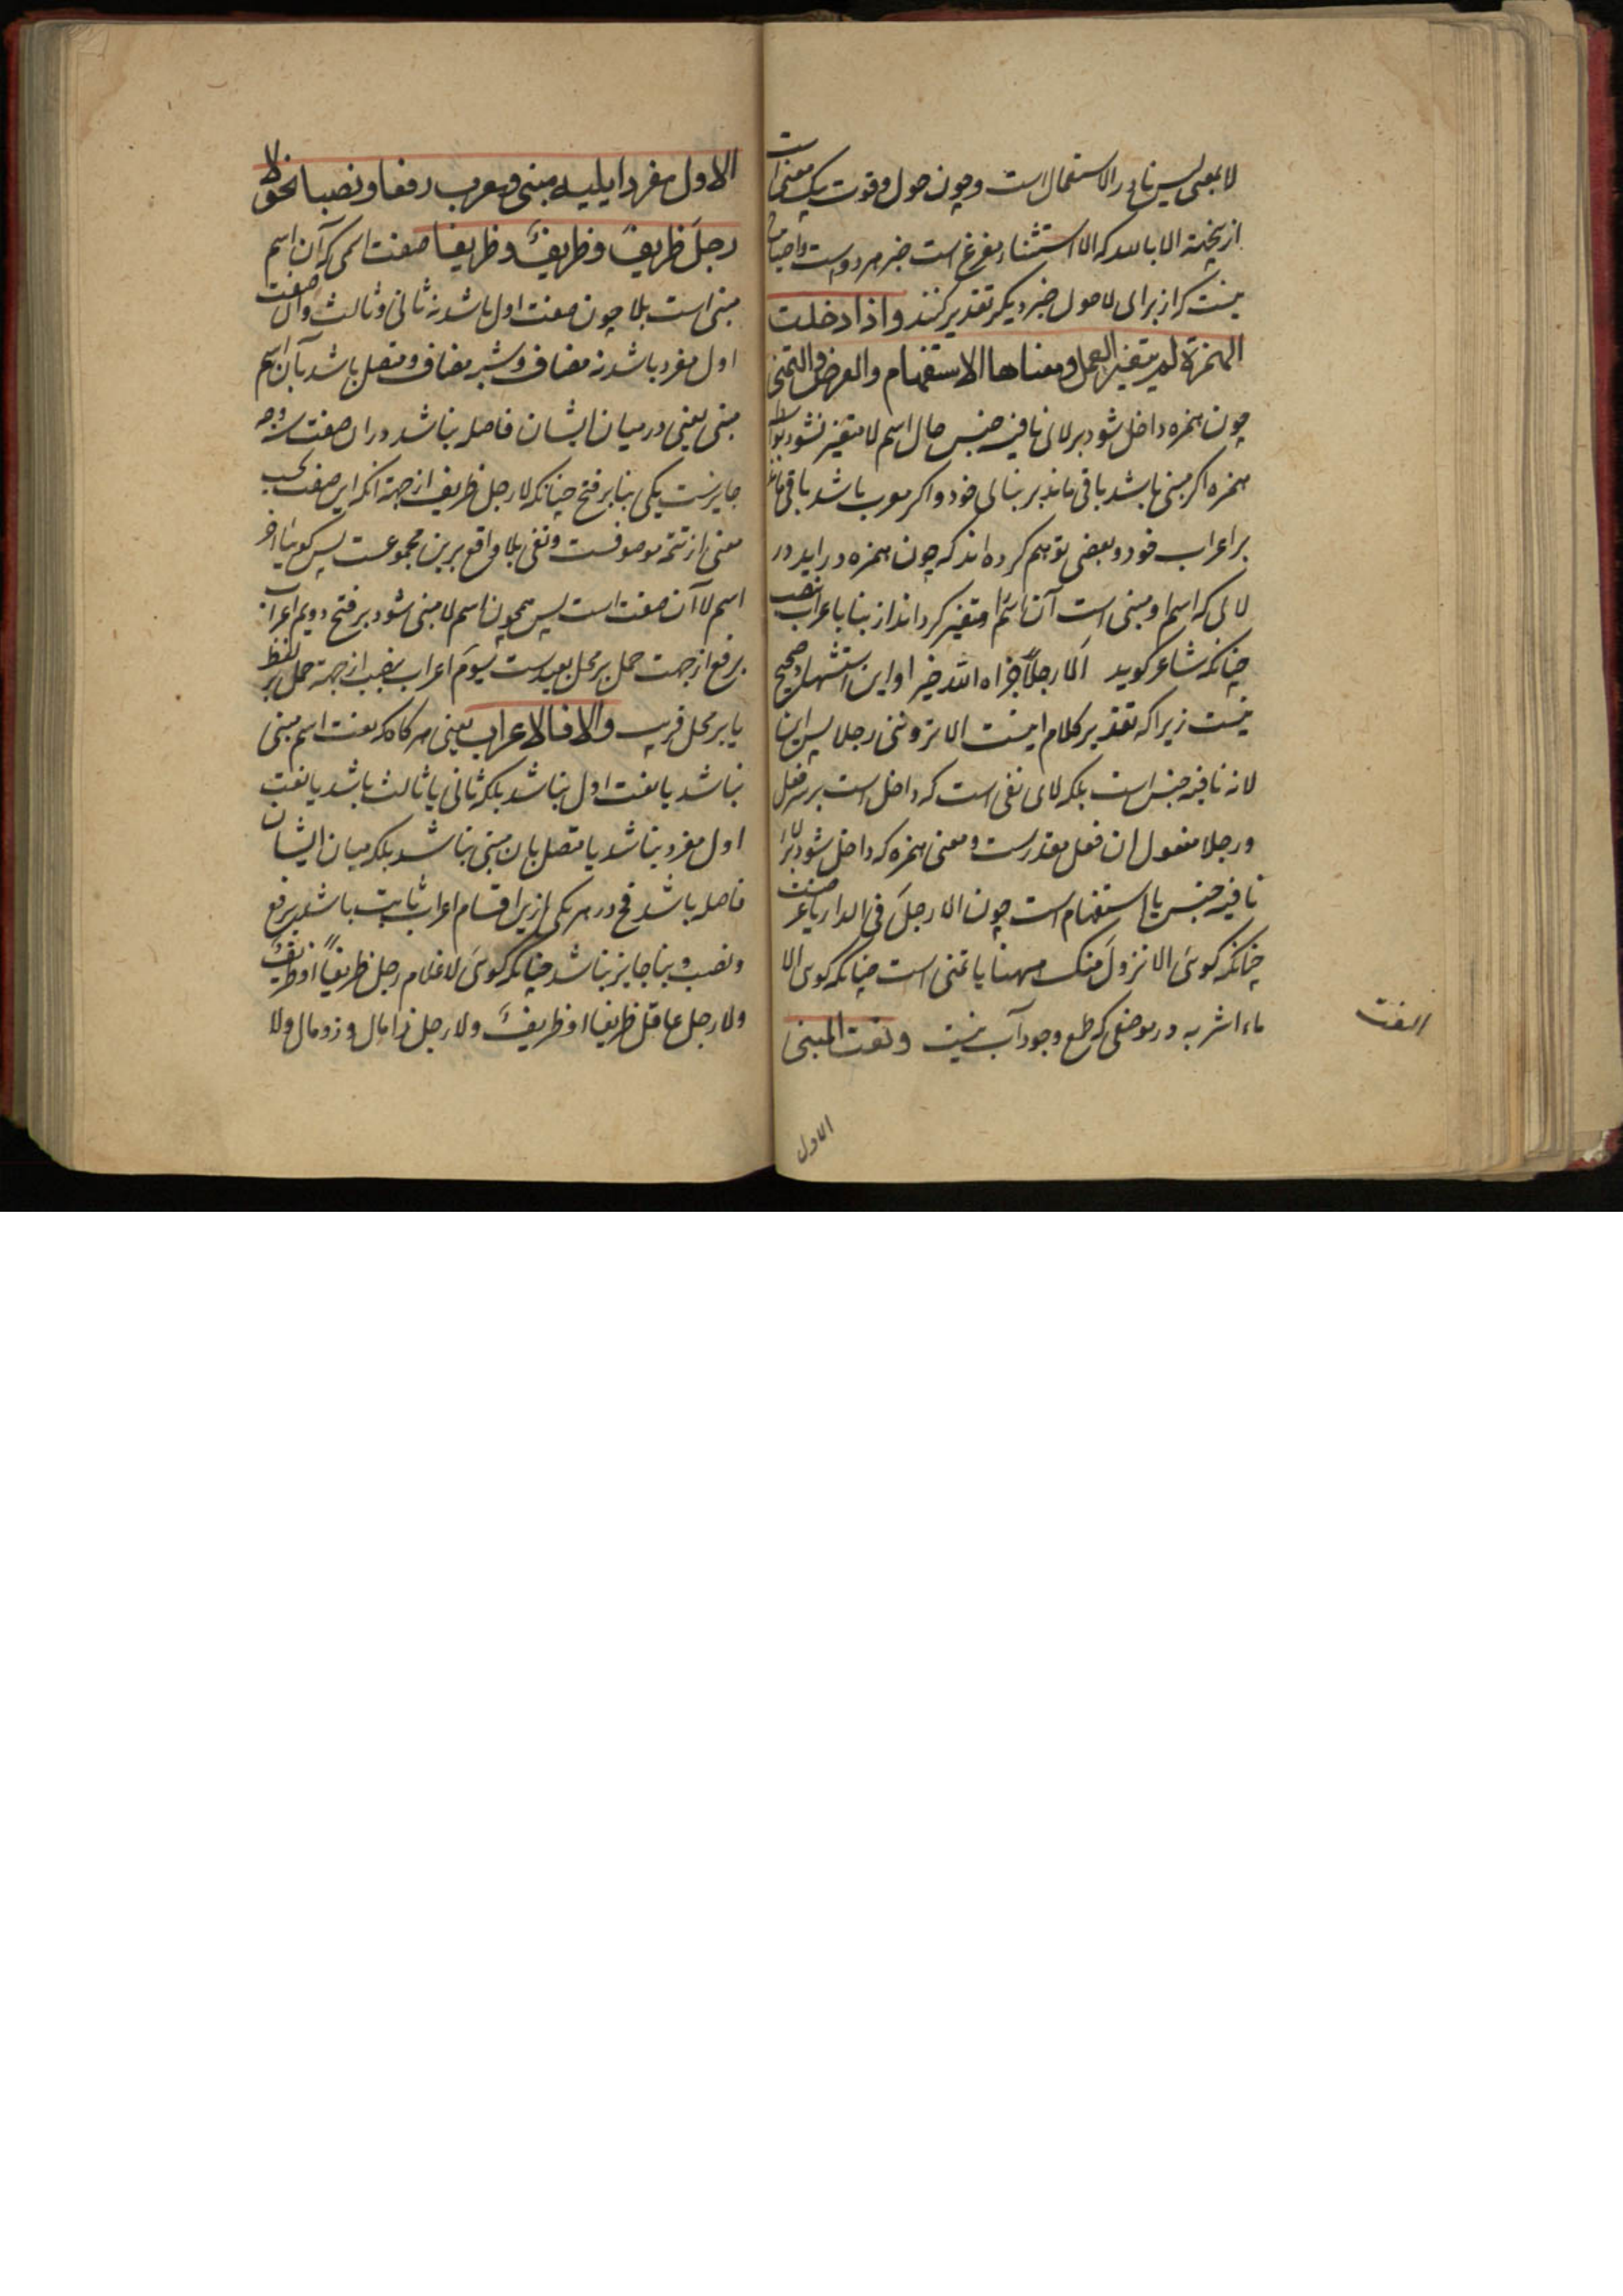 لا بمعنی لیس نادر الاستعمال است و چون حول و قوت بیک معنی است
ازینجهة الا بالله که الا استثناء مفرغ است خبر هر دو است و احتیاج
نیست که از برای لا حول خبر دیگر تقدیر کنند واذا دخلت
الهمزة لم يتغير العمل ومعناها الاستفهام والعرض والتمنى
چون همزه داخل شود بر لای نافیه جنس حال اسم لا متغیر نشود بواسطه
همزه اگر مبنی باشد باقی ماند بر بنای خود و اگر معرب باشد باقی ماند
بر اعراب خود و بعضی توهم کرده اند که چون همزه دراید در
لائی که اسم او مبنی است آن اسم را متغیر گرداند از بنا باعراب نصب
چنانکه شاعر گوید الا رجلاً جزاه الله خیرا و این استشهاد صحیح
نیست زیرا که تقدیر کلام اینست الا تروننی رجلا پس این
لا نه نافیه جنس است بلکه لای نفی است که داخل است بر فعل
و رجلا مفعول ان فعل مقدرست و معنی همزه که داخل شود بر لاء
نافیه جنس یا استفهام است چون الا رجلَ فی الدار یا عرضست
چنانکه گوئی الا نزولَ منک ههنا یا تمنی است چنانکه گوی الا
ماء اشربه در موضعی که طمع وجود آب نیست ونعت المبنى
النعت
الاول
الاول مفردا يليه مبنى ومعرب رفعا ونصبا نحو لا
رجلَ ظريفَ وظريفٌ وظريفا صفت اسمی که آن اسم
مبنی است بلا چون صفت اول باشد نه ثانی و ثالث و آن صفت
اول مفرد باشد نه مضاف و شبه مضاف و متصل باشد بآن اسم
مبنی یعنی در میان ایشان فاصله نباشد دران صفت سه وجه
جایزست یکی بنا بر فتح چنانکه لا رجل ظریف از جهة انکه این صفت بحسب
معنی از تتمه موصوفست و نفی بلا واقع برین مجموعست پس گوییا
اسم لا آن صفت است پس همچون اسم لا مبنی شود بر فتح دویم اعراب
برفع از جهت حمل بر محل بعید سیوم اعراب بنصب از جهة حمل بر لفظ
یا بر محل قریب والا فالاعراب یعنی هرگاه که نعت اسم مبنی
نباشد یا نعت اول نباشد بلکه ثانی یا ثالث باشد یا نعت
اول مفرد نباشد یا متصل بان مبنی نباشد بلکه میان ایشان
فاصله باشد فح در هر یکی ازین اقسام اعراب ثابت باشد برفع
و نصب و بنا جایز نباشد چنانکه گوئی لا غلام رجل ظریفاً او ظریفٌ
ولا رجل عاقل ظریفا او ظریفٌ ولا رجل ذا مال و ذو مال ولا